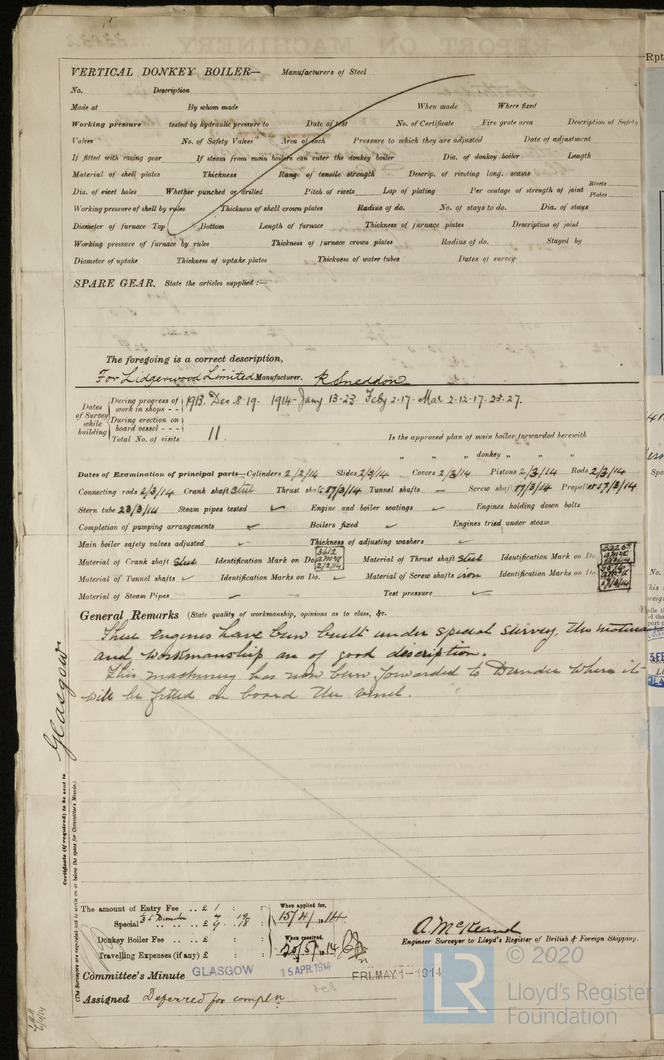 VERTICAL DONKEY BOILER— Manufacturers of Steel
No. Description
Made at By whom made When made Where fixed
Working pressure tested by hydraulic pressure to Date of test No. of Certificate Fire grate area Description of Safety
Valves No. of Safety Valves Area of each Pressure to which they are adjusted Date of adjustment
If fitted with easing gear If steam from main boilers can enter the donkey boiler Dia. of donkey boiler Length
Material of shell plates Thickness Range of tensile strength Descrip. of riveting long. seams
Dia. of rivet holes Whether punched or drilled Pitch of rivets Lap of plating Per centage of strength of joint Rivets Plates
Working pressure of shell by rules Thickness of shell crown plates Radius of do. No. of stays to do. Dia. of stays
Diameter of furnace Top Bottom Length of furnace Thickness of furnace plates Description of joint
Working pressure of furnace by rules Thickness of furnace crown plates Radius of do. Stayed by
Diameter of uptake Thickness of uptake plates Thickness of water tubes Dates of survey
SPARE GEAR. State the articles supplied :—
The foregoing is a correct description,
For Lidgerwood Limited Manufacturer. R Sneddon
Dates of Survey while building
During progress of work in shops - - 1913. Dec. 8. 19. 1914 - Jany 13. 23. Feby 2. 17. Mar 2. 12. 17. 23. 27.
During erection on board vessel - - -
Total No. of visits 11.
Is the approved plan of main boiler forwarded herewith
" " " donkey " " "
Dates of Examination of principal parts—Cylinders 2/2/14 Slides 2/3/14 Covers 2/3/14 Pistons 2/3/14 Rods 2/3/14
Connecting rods 2/3/14 Crank shaft Steel Thrust shaft 17/3/14 Tunnel shafts — Screw shaft 17/3/14 Propeller 17/3/14
Stern tube 23/3/14 Steam pipes tested ✓ Engine and boiler seatings ✓ Engines holding down bolts
Completion of pumping arrangements ✓ Boilers fixed ✓ Engines tried under steam
Main boiler safety valves adjusted ✓ Thickness of adjusting washers ✓
Material of Crank shaft Steel Identification Mark on Do. 3612 2/2/14 Material of Thrust shaft Steel Identification Mark on Do.
Material of Tunnel shafts ✓ Identification Marks on Do. ✓ Material of Screw shafts iron Identification Marks on Do.
Material of Steam Pipes — Test pressure ✓
General Remarks (State quality of workmanship, opinions as to class, &c.
These engines have been built under special survey, the material
and workmanship are of good description.
This machinery has now been forwarded to Dundee where it
will be fitted on board the vessel.
Certificate (if required) to be sent to Glasgow
(The Surveyors are requested not to write on or below the space for Committee's Minute.)
The amount of Entry Fee .. £ 1 : : When applied for,
Special .. .. £ 15/4/14
Donkey Boiler Fee .. £ : : When received,
Travelling Expenses (if any) £ : : 20/5/14
A. McKeand
Engineer Surveyor to Lloyd's Register of British & Foreign Shipping.
Committee's Minute GLASGOW 15 APR. 1914 FRI. MAY. 1-1914
Assigned Deferred for compln
© 2020
LR
Lloyd's Register
Foundation